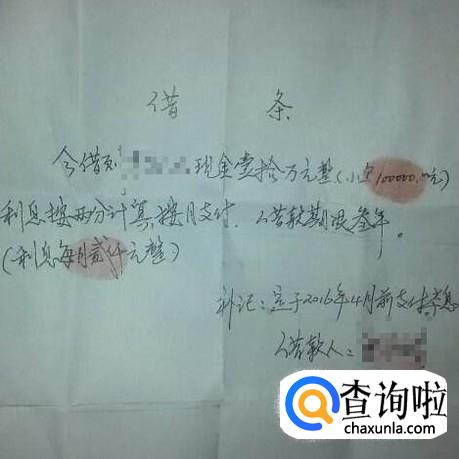 借 条
今借到 现金壹拾万元整(小写100000.00元)
利息按两分计算,按月支付.借款期限叁年。
(利息每月贰仟元整)
补记:定于2016年4月前支付 息
借款人:
查询啦
chaxunla.com